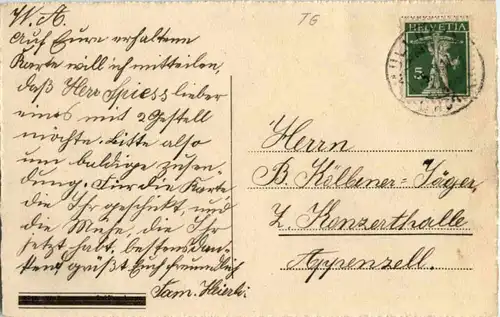 W. A.
TG
Auf Eure erhaltene
Karte will ich mitteilen,
daß Herr Spiess lieber
eines mit 2 Gestell
möchte. Bitte also
um baldige zusen-
dung. Für die Karte
die Ihr geschikt, und
die Mühe, die Ihr
jetzt habt, bestens dan-
kend grüßt Euch freundlich
Fam. Heierli.
HELVETIA
5
Herrn
B. Kölbener-Jäger
z. Konzerthalle
Appenzell.